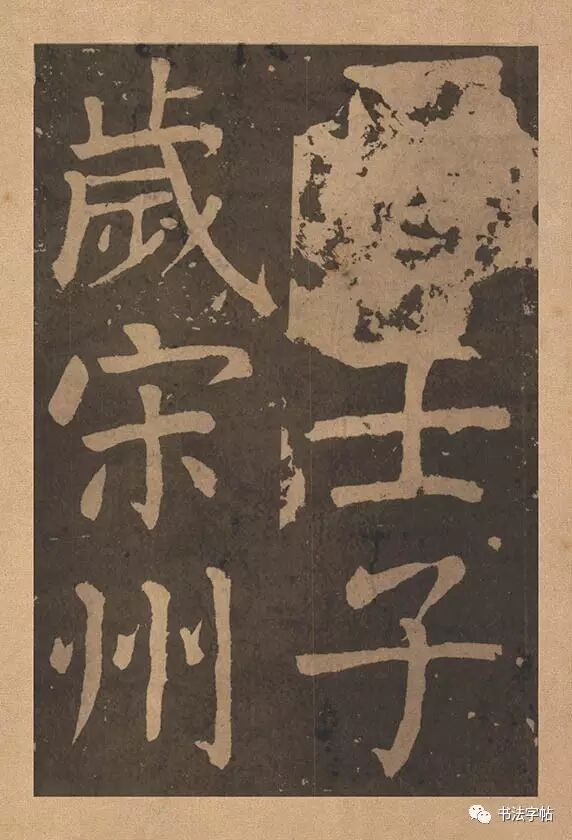 壬子
歲宋州
书法字帖